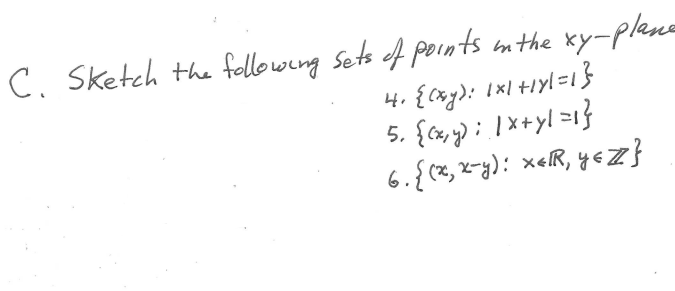 C. Sketch the following sets of points in the xy-plane
4. {(x,y): |x|+|y|=1}
5. {(x,y): |x+y|=1}
6. {(x, x-y): x∈ℝ, y∈ℤ}